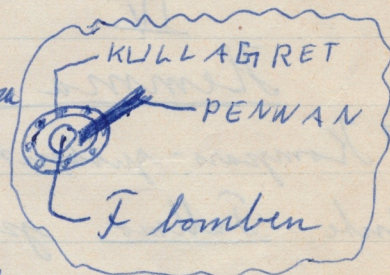 KULLAGRET
PENNAN
F bomben